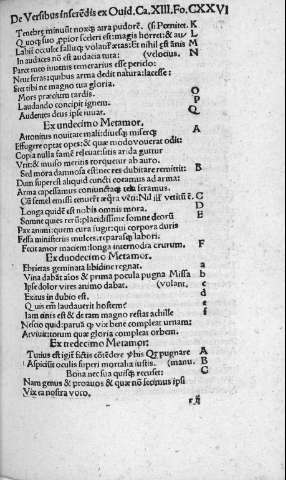 De Versibus inserẽdis ex Ouid. Ca. XIII. Fo. CXXVI
Tenebrę minuũt noxęq; atra pudorẽ. (si Pernitet. K
Q uoq; suo ,ppior sceleri est: magis horret: & au L
Labiĩ occulte fallitq; volatilis ętas: Et nihil est ãnis M
In audaces nõ est audacia tuta: (velocius. N
Parce meo iuuenis temerarius esse periclo:
Neue feras: quibus arma dedit natura: lacesse:
Stet tibi ne magno tua gloria.
Mors præcium tardis. O
Laudando concipit ignem. P
Audentes deus ipse iuuat. Q
Ex undecimo Metamor.
Attonitus nouitate mali: diuesq; miserq; A
Effugere optat opes: & quæ modo vouerat odit:
Copia nulla famẽ releuat: sitis arida guttur
Vrit: & inuiso meritis torquetur ab auro.
Sed mora damnosa est: nec res dubitare remittit: B
Dum superest aliquid cuncti coeamus ad arma:
Arma capessamus coniunctaq; tela feramus.
Longa quidẽ est nobis omnis mora. D
Somne quies rerũ: placidissime somne deorũ E
Pax animi: quem cura fugit: qui corpora duris
Fessa ministeriis mulces: reparasq; labori.
Fecit amor maciem: longa internodia crurum. F
Ex duodecimo Metamor.
Ebrietas geminata libidine regnat. a
Vina dabãt aĩos & prima pocula pugna Missa b
Ipse dolor vires animo dabat. (volant. c
Exitus in dubio est. d
Q uis em̃ laudauerit hostem? e
Iam cinis est & de tam magno restat achille f
Nescio quid: paruã q̃ vix bene compleat urnam:
At viuit: totum quæ gloria compleat orbem.
Ex tredecimo Metamor:
Tutius est igit̃ fictis cõtẽdere ṽbis Qz pugnare A
Aspiciũt oculis superi mortalia iustis. (manu. B
Bona nec sua quisq; recuset: C
Nam genus & proauos & quæ nõ fecimus ipsi
Vix ea nostra voco.